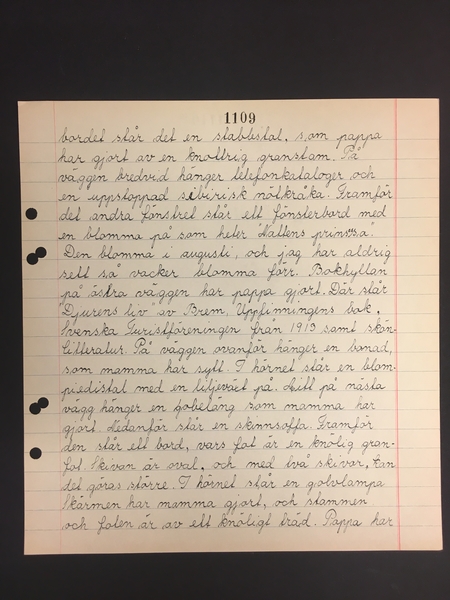 1109
bordet står det en stabbstol, som pappa
har gjort av en knottrig granstam. På
väggen bredvid hänger telefonkataloger och
en uppstoppad sibirisk nötkråka. Framför
det andra fönstret står ett fönsterbord med
en blomma på som heter "Nattens prinsessa."
Den blomma i augusti, och jag har aldrig
sett så vacker blomma förr. Bokhyllan
på östra väggen har pappa gjort. Där står
"Djurens liv av Brem, Uppfinningens bok,
Svenska Turistföreningen från 1913 samt skön-
litteratur. På väggen ovanför hänger en bonad,
som mamma har sytt. I hörnet står en blom-
piedistal med en liljeväxt på. Mitt på nästa
vägg hänger en gobeläng som mamma har
gjort. Nedanför står en skinnsoffa. Framför
den står ett bord, vars fot är en knölig gran-
fot. Skivan är oval, och med två skivor, kan
det göras större. I hörnet står en golvlampa
Skärmen har mamma gjort, och stammen
och foten är av ett knöligt träd. Pappa har